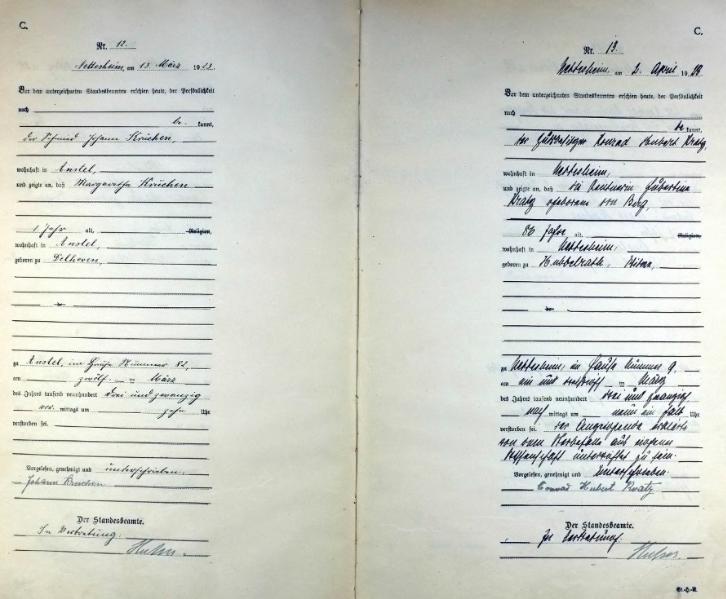 C.
Nr. 12.
Nettesheim, am 13. März 1923.
Vor dem unterzeichneten Standesbeamten erschien heute, der Persönlichkeit
nach
be kannt,
der Schmied Johann Krüchen,
wohnhaft in Anstel,
und zeigte an, daß Margaretha Krüchen
1 Jahr alt, Religion,
wohnhaft in Anstel,
geboren zu Delhoven,
zu Anstel, im Hause Nummer 82,
am zwölften März
des Jahres tausend neunhundert drei und zwanzig
vor mittags um zehn Uhr
verstorben sei.
Vorgelesen, genehmigt und unterschrieben.
Johann Krüchen
Der Standesbeamte.
In Vertretung.
C.
Nr. 13.
Nettesheim, am 2. April 19
Vor dem unterzeichneten Standesbeamten erschien heute, der Persönlichkeit
nach
be kannt,
der Gutsbesitzer Konrad Hubert Kratz,
wohnhaft in Nettesheim,
und zeigte an, daß die Rentnerin Hubertina
Kratz geborene von Berg,
Jahre alt, Religion,
wohnhaft in Nettesheim,
geboren zu Hubbelrath,
zu Nettesheim, im Hause Nummer 9,
am ein und dreißigsten März
des Jahres tausend neunhundert drei und zwanzig
nach mittags um neun ein halb Uhr
verstorben sei. Der Anzeigende erklärte
von dem Sterbefalle aus eigener
Wissenschaft unterrichtet zu sein.
Vorgelesen, genehmigt und unterschrieben.
Conrad Hubert Kratz
Der Standesbeamte.
In Vertretung.